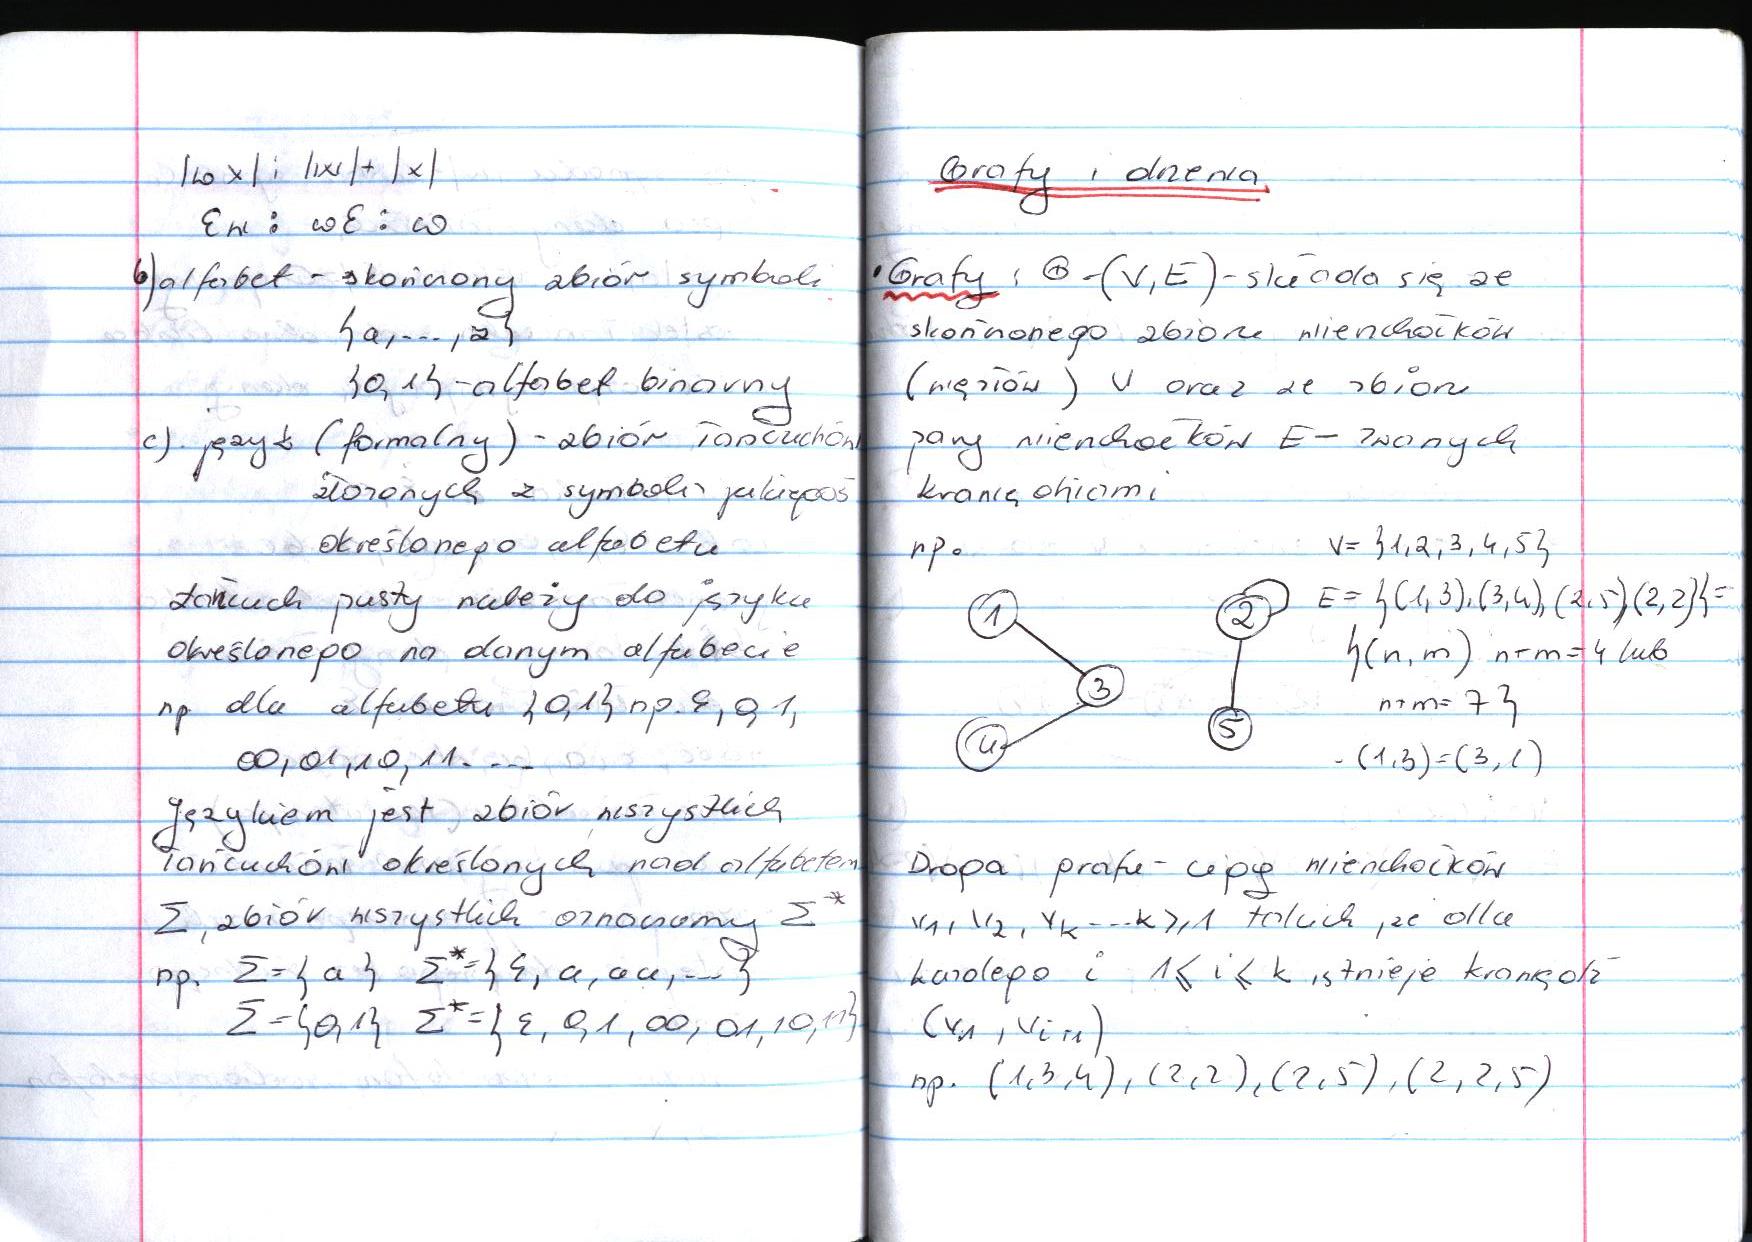 |ωx| : |w|+|x|
εw : ωε : ω
b) alfabet - skończony zbiór symboli
{a,...,z}
{0,1} - alfabet binarny
c). język (formalny) - zbiór łańcuchów
złożonych z symboli jakiegoś
określonego alfabetu
łańcuch pusty należy do języka
określonego na danym alfabecie
np dla alfabetu {0,1} np. ε, 0, 1,
00, 01, 10, 11. ...
Językiem jest zbiór wszystkich
łańcuchów określonych nad alfabetem
Σ, zbiór wszystkich oznaczamy Σ*
np. Σ={a} Σ*={ε, a, aa, ...}
Σ={0,1} Σ*={ε, 0, 1, 00, 01, 10, 11}
Grafy i drzewa
• Grafy : G -(V,E) - składa się ze
skończonego zbioru wierzchołków
(węzłów) V oraz ze zbioru
pary wierzchołków E - zwanych
krawędziami
np.
V= {1,2,3,4,5}
E= {(1,3),(3,4),(2,5),(2,2)}=
{(n,m) n+m=4 lub
n+m=7}
- (1,3)=(3,1)
1
2
3
4
5
Droga grafu - ciąg wierzchołków
v1, v2, vk ... k≥1 takich, że dla
każdego i 1≤i≤k istnieje krawędź
(v1, vi+1)
np. (1,3,4), (2,2), (2,5), (2,2,5)